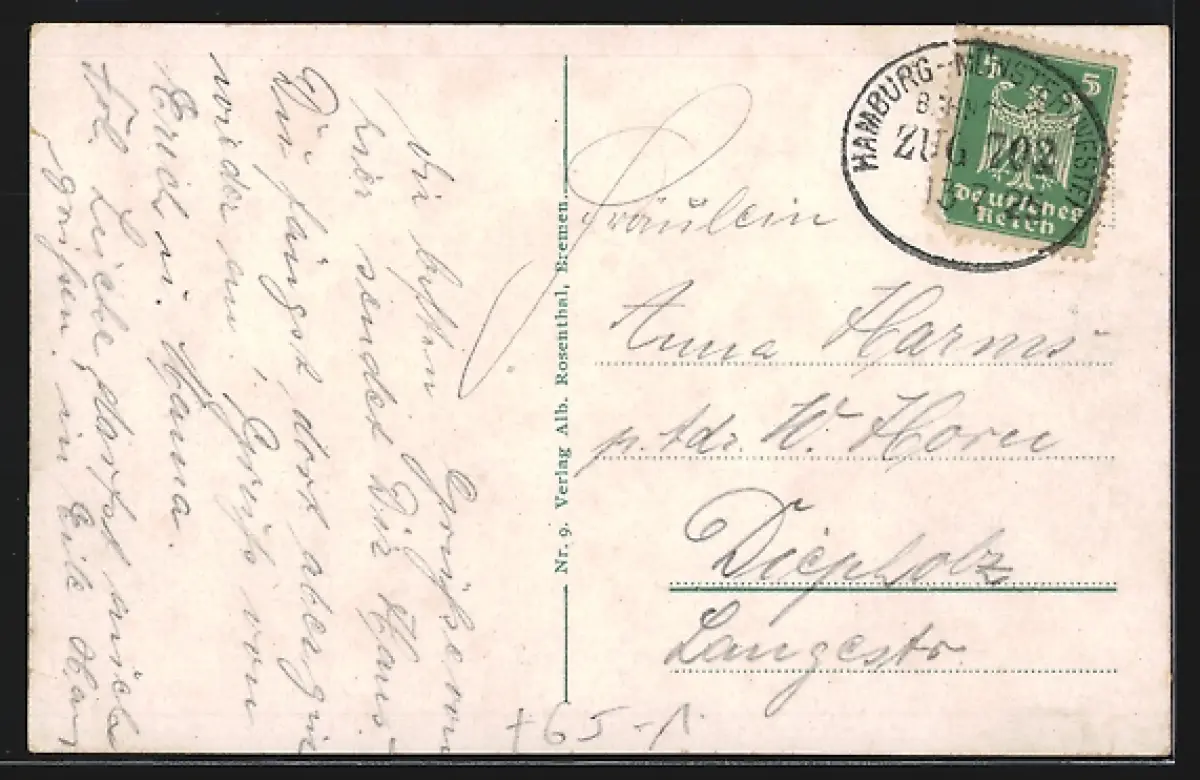 HAMBURG-MÜNSTER (WESTF)
BAHNPOST
ZUG 202
13
5 5
Deutsches
Reich
Fräulein
Anna Harms
p. Adr. W. Horn
Diepholz
Langestr.
Nr. 9. Verlag Alb. Rosenthal, Bremen.
Die besten Grüße von
hier sendet Dir Hans.
Du fängst dort aber
wieder an. Gruß von
Erich u. Hanna.
Liebe, darfst auch
grüßen, in Eile
+ 65